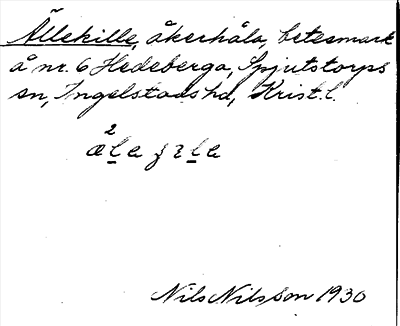 Ällekille, åkerhåla, betesmark
å nr. 6 Hedeberga, Spjutstorps
sn, Ingelstads hd, Krist. l.
Nils Nilsson 1930